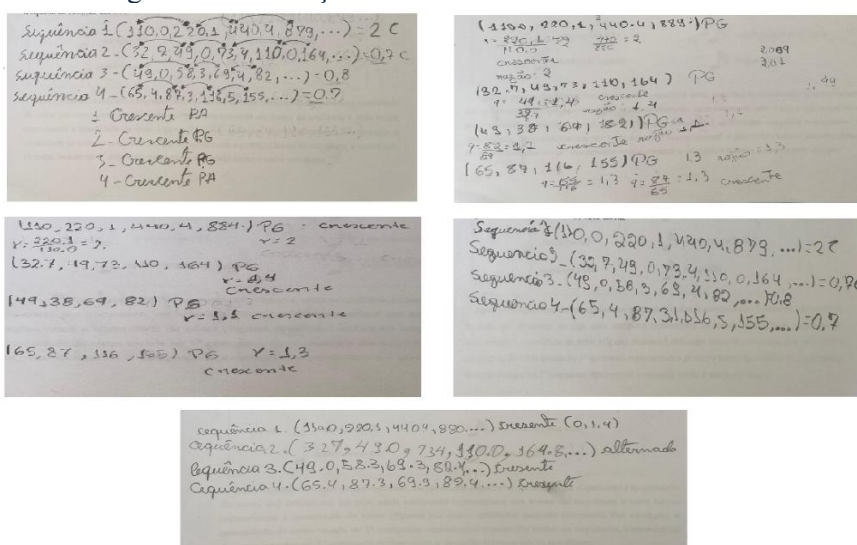 Sequência 1 (110,0,220,1,440,4,879,...)=2 C
sequência 2-(32,7,49,0,73,4,110,0,164,...)=0,7 C
sequência 3-(49,0,58,3,69,4,82,...)-0,8
sequência 4-(65,4,87,3,116,5,155,...)=0.7
1 Crescente PA
2- Crescente PG
3- Crescente PG
4- Crescente PA
(110,0, 220,1, 440.4, 889.) PG
crescente
razão: 2
2,01
(32.7, 49,73, 110, 164) PG
crescente
PG
(65, 87, 116, 155) PG 1,3 razão = 1,3
= 1,3 q= 87/65 = 1,3 crescente
(110, 220, 1, 440.4, 884.) PG : crescente
r= 220.1/110.0 = 2. r= 2
(32.7, 49,73, 110, 164) PG
r= 1,4
crescente
(49,38,69, 82) PG
r= 1,1 crescente
(65, 87, 116, 165) PG r= 1,3
crescente
(110,0, 220,1, 440,4, 879, ...)=2C
(32,7,49,0,73,4,110,0,164,...)=0,7C
Sequencia 3-(49,0,58,3,69,4,82,...)0,8
Sequencia 4-(65,4,87,3,1,116,5,155,...)=0,7
sequência 1. (1100,220,1,4404,880...) cresente (0,1,4)
cequência 2.(327,49.0,734,110.0,164.8,...) alternado
Sequência 3.(49.0,58.3,69.3,82.4,...) cresente
Cequência 4.(65.4,87.3,69.3,89.4....) cresente